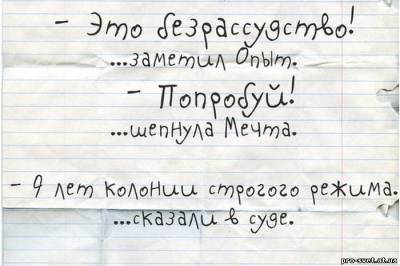 - Это безрассудство!
...заметил Опыт.
- Попробуй!
...шепнула Мечта.
- 9 лет колонии строгого режима.
...сказали в суде.
pro-svet.at.ua